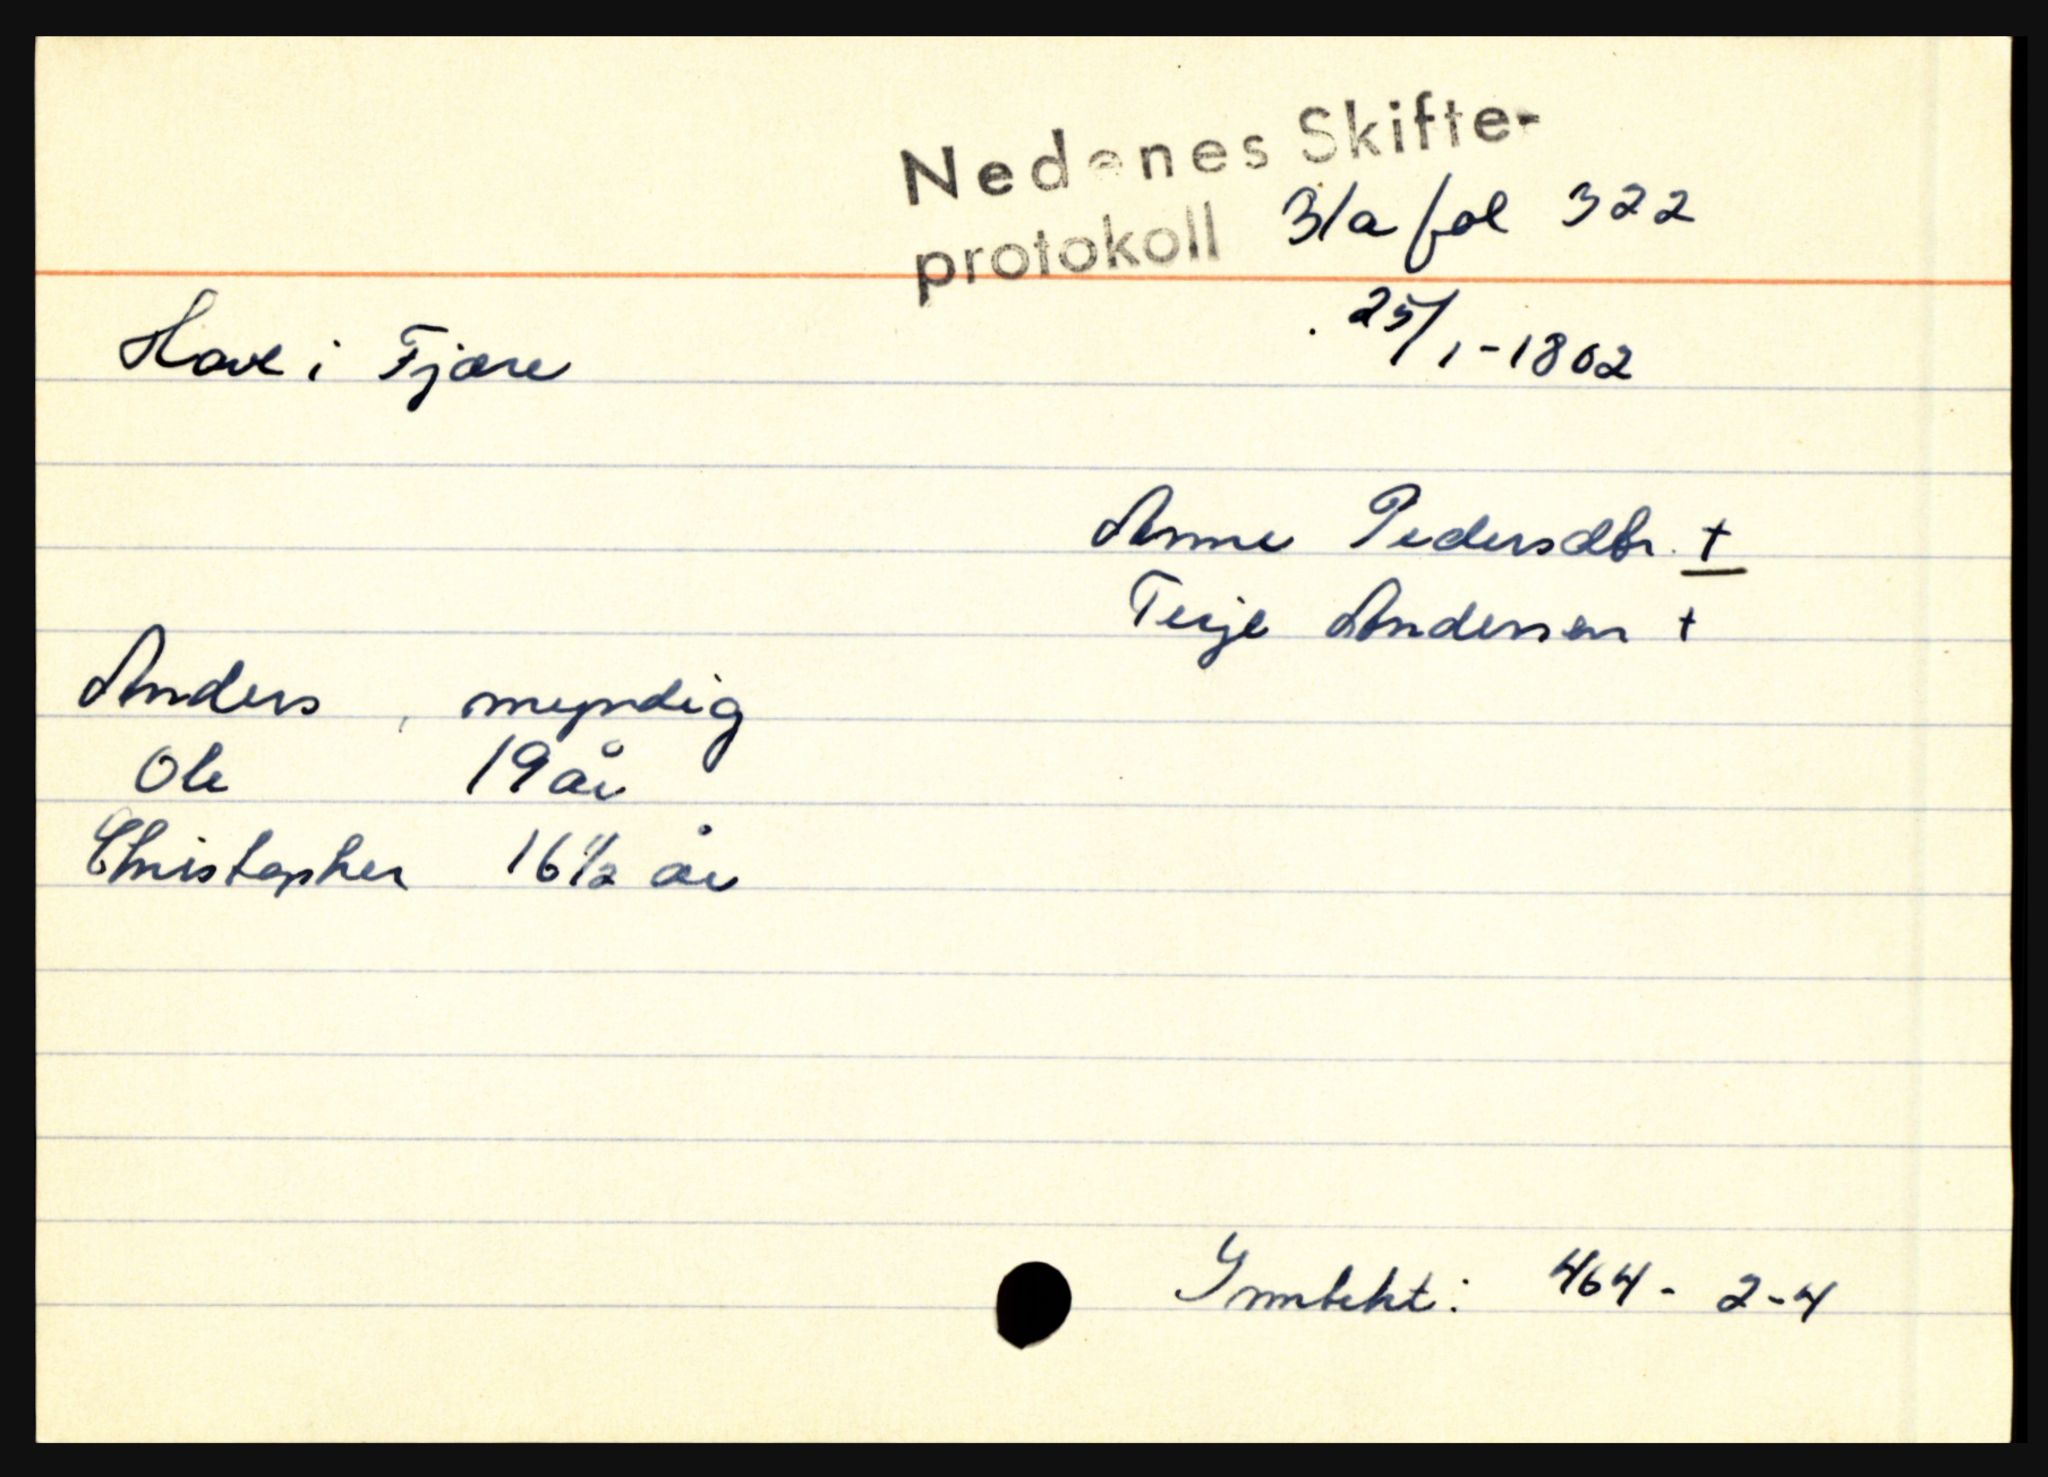 Nedenes Skifte-
protokoll 31a fol 322
Have i Fjære 25/1-1802
Anne Pedersdtr. +
Terje Andersen +
Anders, myndig
Ole 19 år
Christopher 16 1/2 år
464 - 2-4